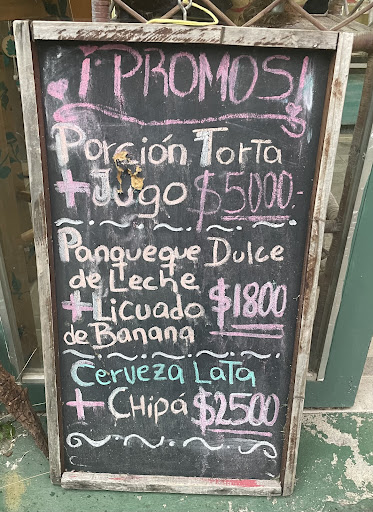 ¡PROMOS!
Porción Torta
+ Jugo $5000.-
Panqueque Dulce
de Leche
+ Licuado $1800
de Banana
Cerveza Lata
+ Chipá $2500